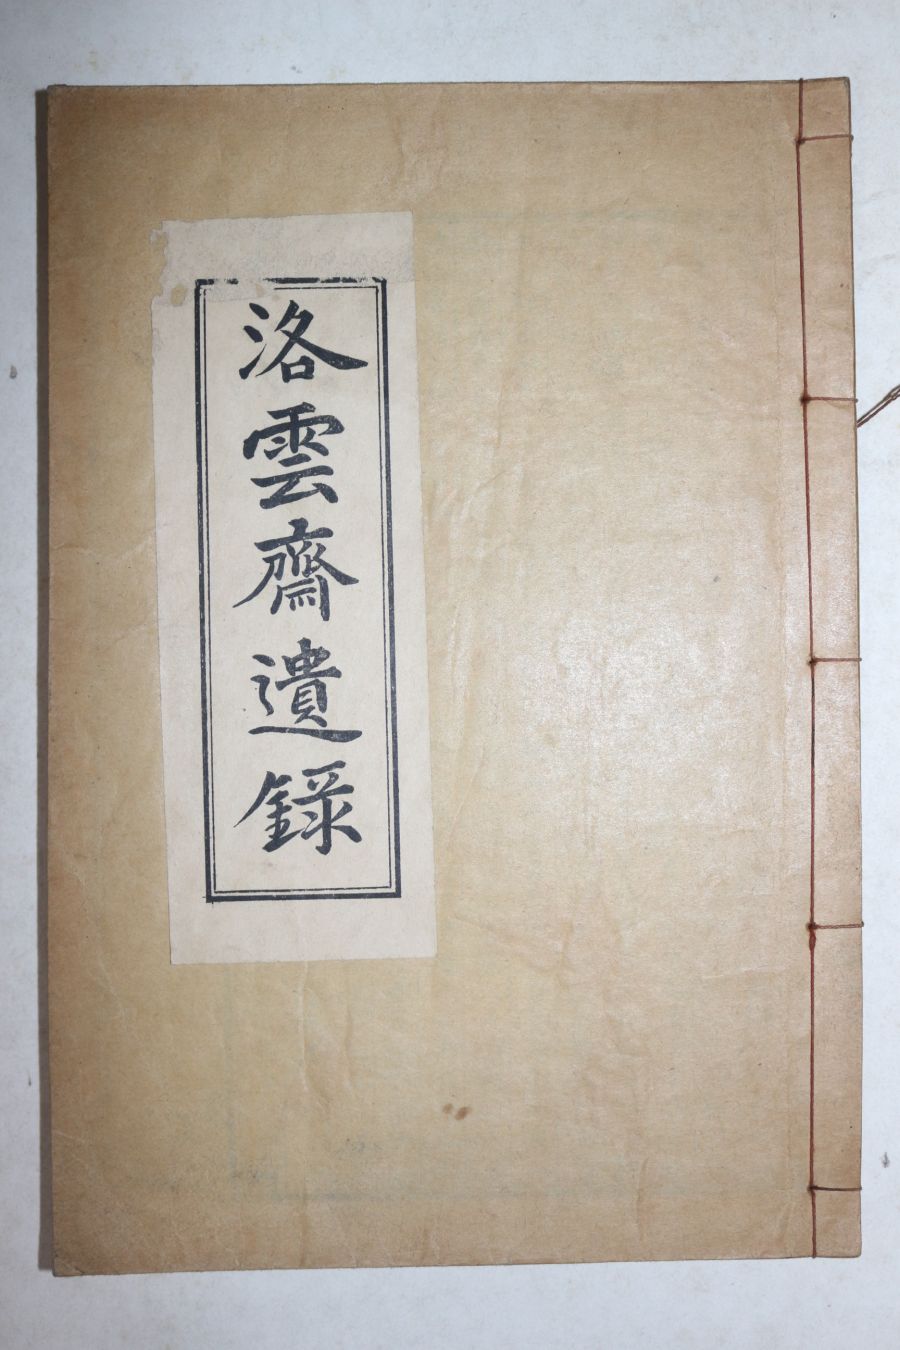 洛雲齋遺錄